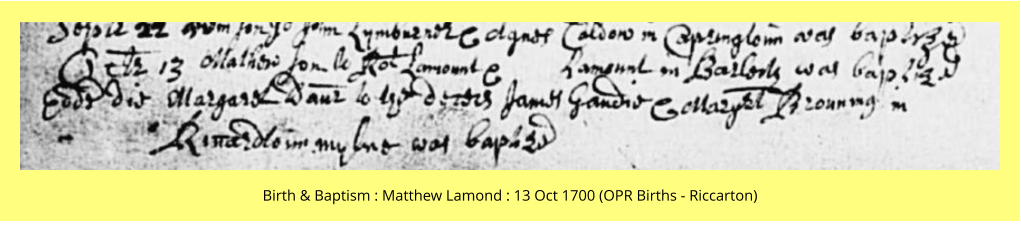 Septr 22 Adam son to John Lymburner & Agnes Caldow in Capringtoun was baptized
Octr 13 Mathew son to Rot Lamount & Lamount in Barleith was baptized
Eode die Margaret Daur to the deceis James Gaudie & Margret Brouning in
Riccardtoun mylne was baptzed
Birth & Baptism : Matthew Lamond : 13 Oct 1700 (OPR Births - Riccarton)